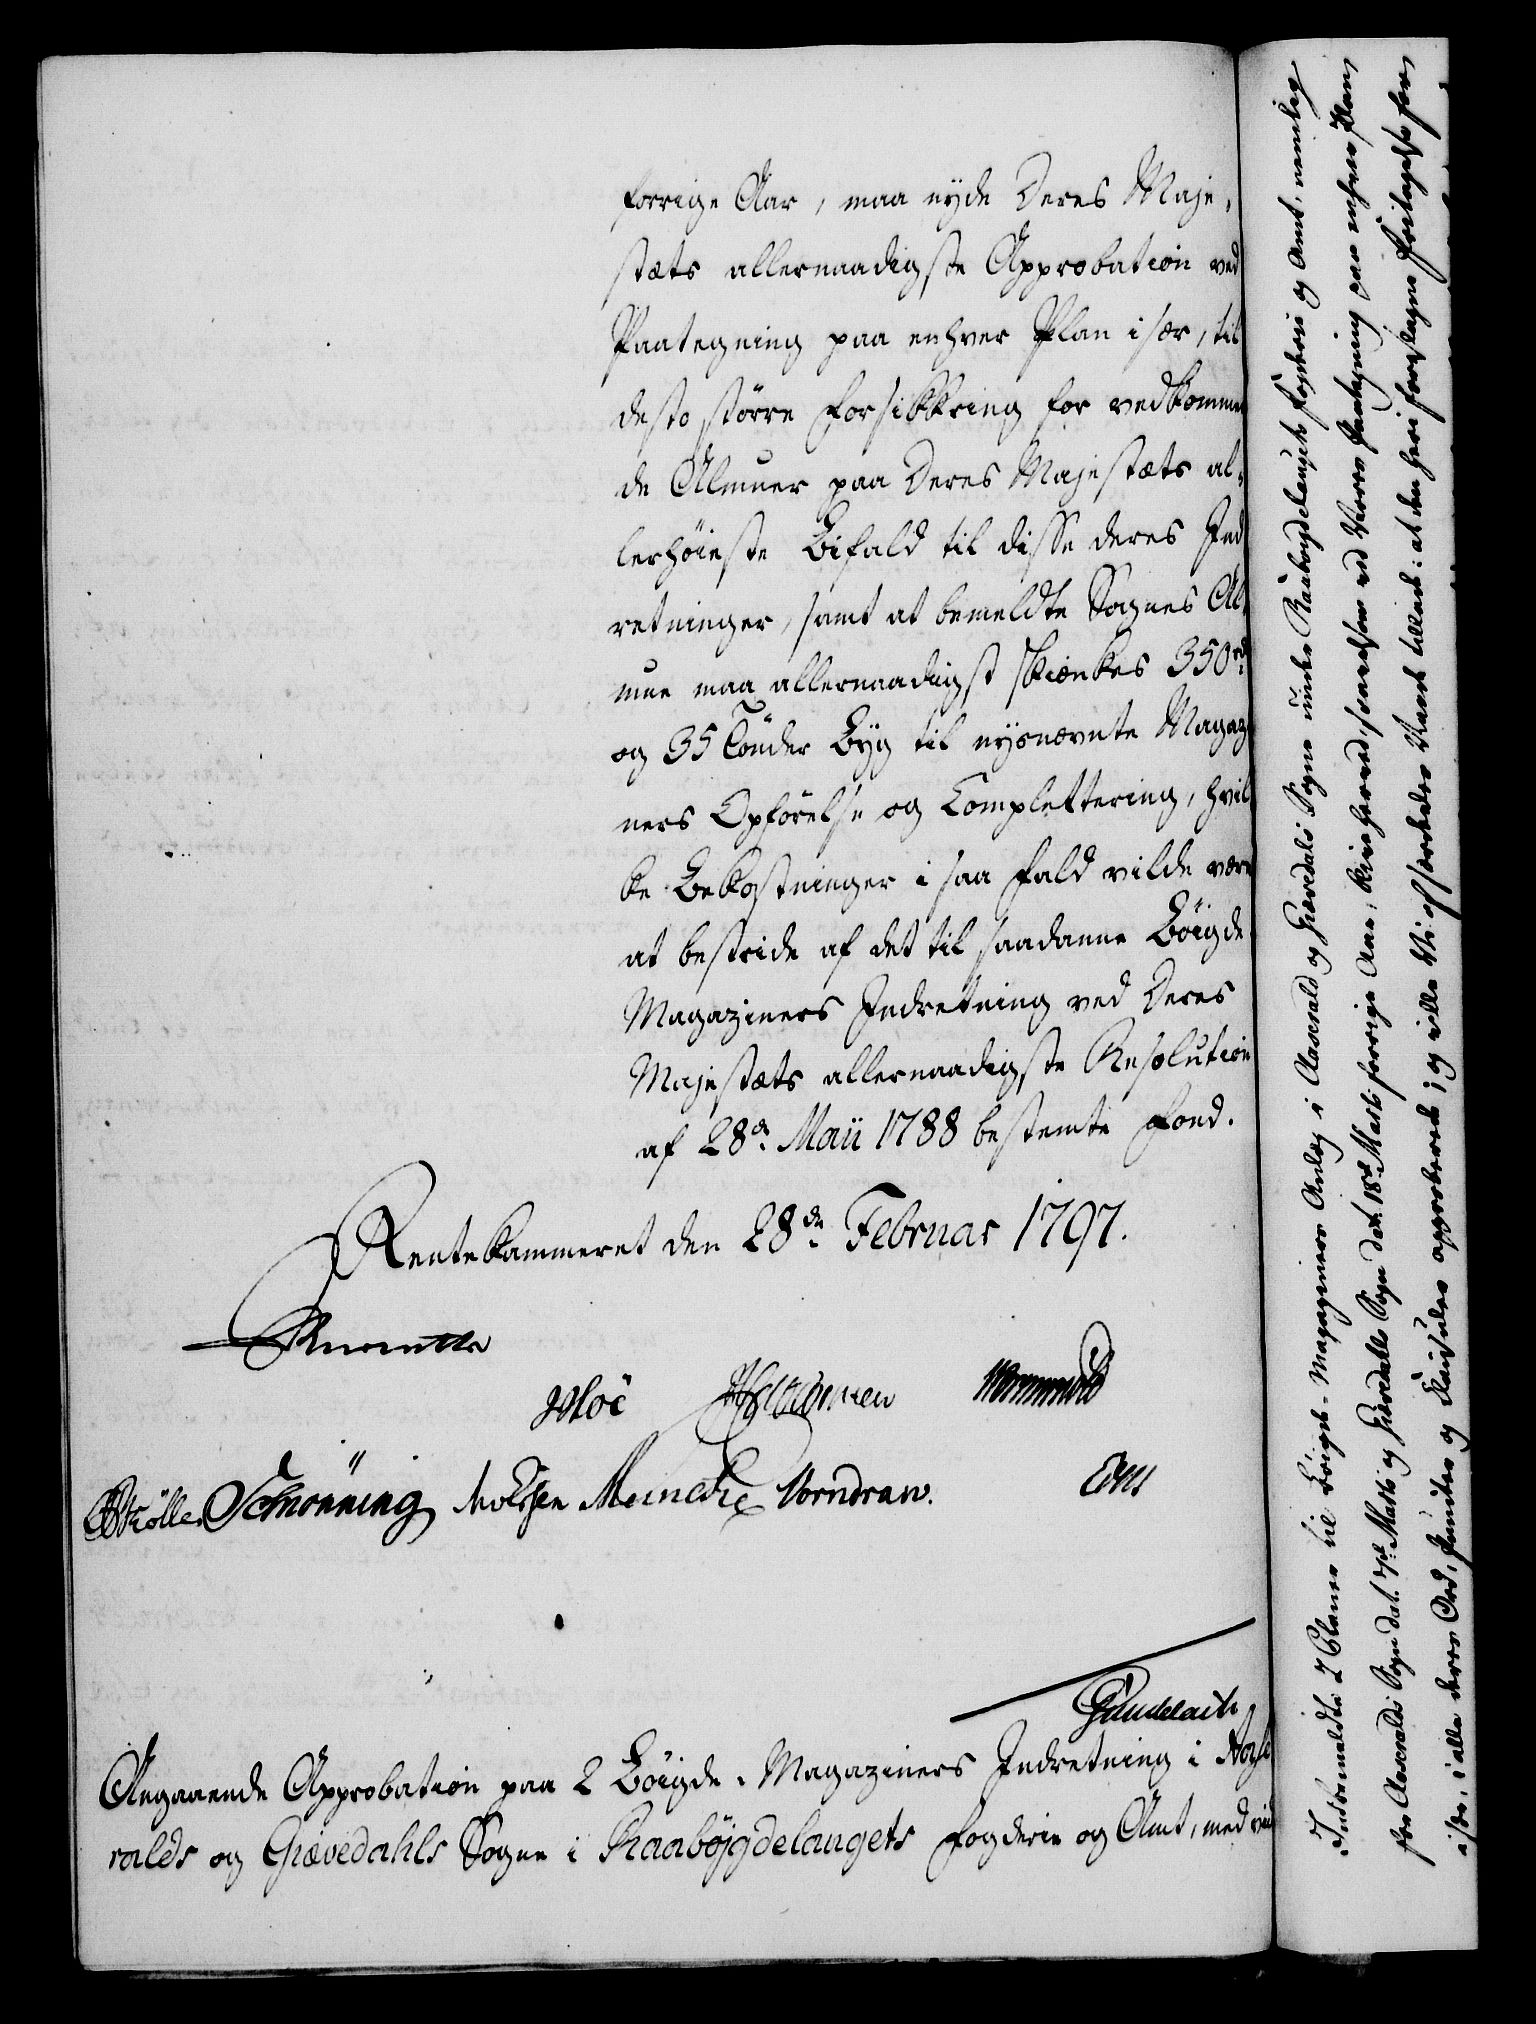 forrige Aar, maa nyde Deres Maje-
stæts allernaadigste Approbation ved
Paategning paa enhver Plan især, til
desto større Forsikkring for vedkommen
de Almuer paa Deres Majestæts al-
lerhøieste Bifald til disse deres Ind
retninger, samt at bemeldte Sognes Al
mue maa allernaadigst skienkes 350 rd.
og 35 Tønder Byg til nysnævnte Magazi
ners Opførelse og Complettering, hvil
ke Bekostninger i saa Fald vilde være
at bestride af det til saadanne Bøigde
Magaziners Indretning ved Deres
Majestæts allernaadigste Resolution
af 28de Maii 1788 bestemte Fond.
Rentekammeret den 28de Februar 1797.
Schrönning Meincke Vorndran.
Angaaende Approbation paa 2 Bøigde-Magaziners Indretning i
ralds og Giævedahls Sogne i Raabøjgdelaugets Fogderie og Amt, med
Indbemeldte 2 Planer til Bøigde-Magaziners Anlæg i Aaserald og Giævedals Sogne under Raabøydelaugets Fogderie og Amt, nemlig
for Aaserals Sogn dat. 7de Martii og Giævedahls Sogn dat. 18de Martii forrige Aar, hvorved ved Vores Paategning paa enhver Plan
i alle deres Ord, Puncter og Clausuler approberede; og ville Vi Vand tillade: at den heri foreslagne